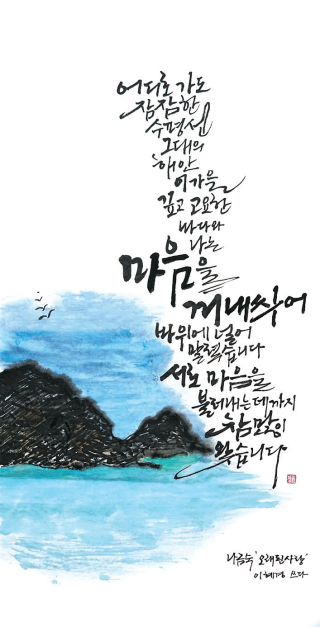 어디로 가도
잠잠한
수평선
그대의
해안
어가을
깊고 고요한
바다와
나는
마음을
꺼내씻어
바위에 널어
말렸습니다
서로 마음을
불러내는데까지
참 많이
왔습니다
나금숙 '오래된사랑'
이혜경 쓰다